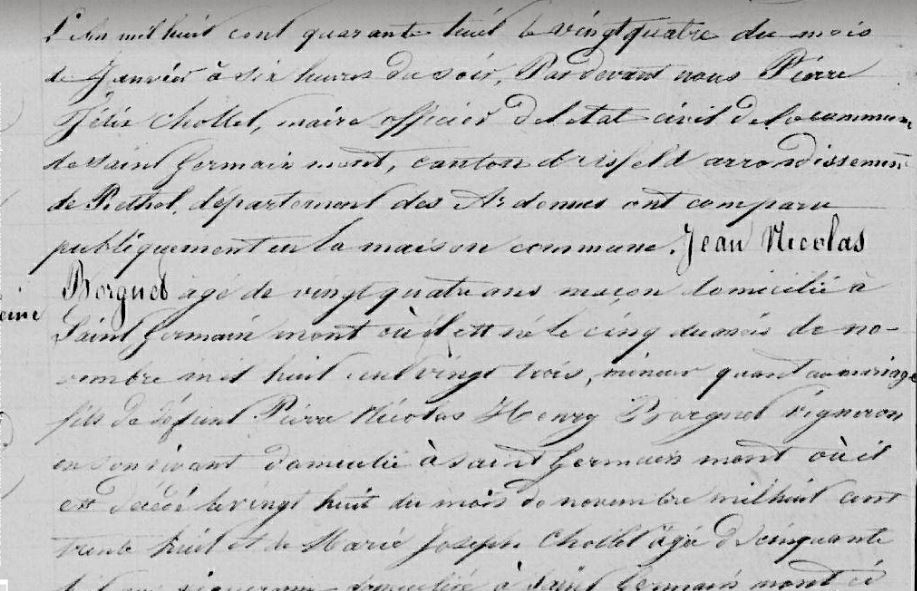 L'An mil huit cent quarante huit le vingt quatre du mois
de Janvier à six heures du soir, Pardevant nous Pierre
Félix Chollet, maire officier de l'etat civil de la commune
de Saint Germainmont, canton d'Asfeld arrondissement
de Rethel, département des Ardennes ont comparu
publiquement en la maison commune, Jean Nicolas
Borgnet agé de vingt quatre ans maçon domicilié à
Saint Germainmont où il est né le cinq du mois de no-
vembre mil huit cent vingt trois, mineur quant au mariage
fils de défunt Pierre Nicolas Henry Borgnet vigneron
en son vivant domicilié à Saint Germainmont où il
est décédé le vingt huit du mois de novembre mil huit cent
trente huit et de Marie Joseph Chollet âgée de cinquante
vigneronne domiciliée à Saint Germainmont ci